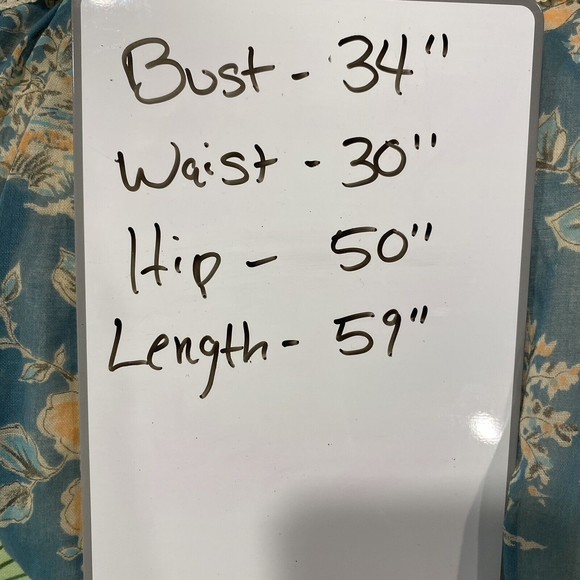 Bust - 34"
Waist - 30"
Hip - 50"
Length - 59"